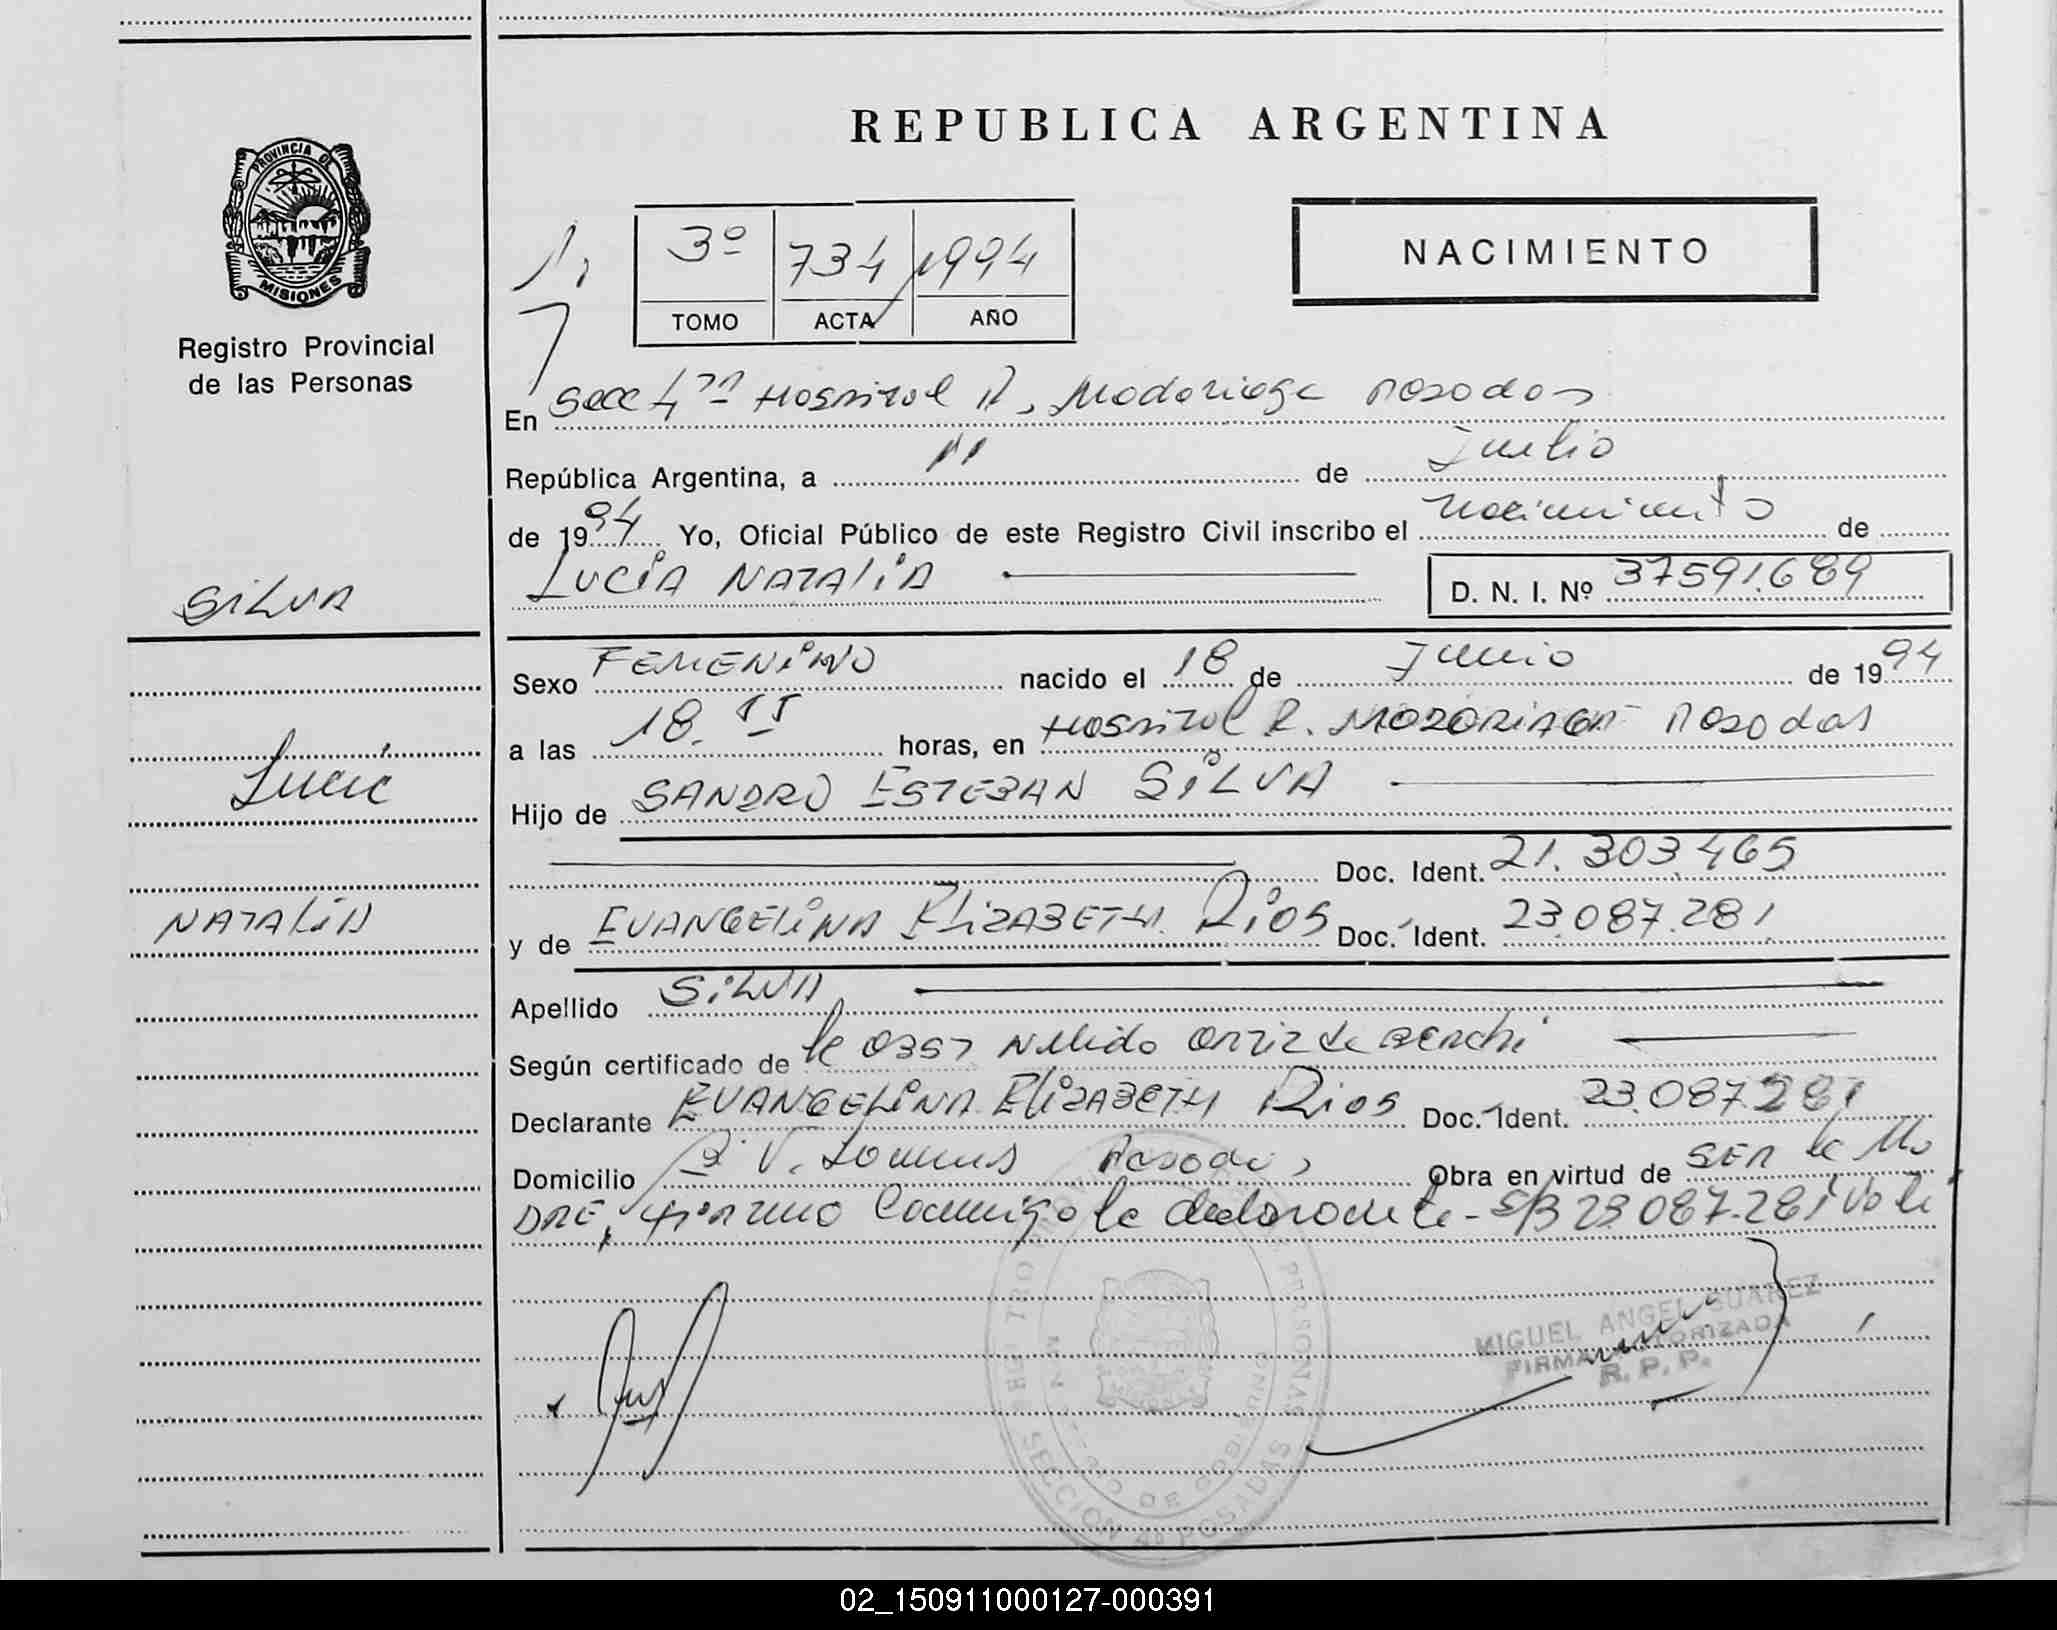 REPUBLICA ARGENTINA
PROVINCIA DE
MISIONES
Registro Provincial
de las Personas
3º 734 1994
TOMO ACTA AÑO
NACIMIENTO
En Secc 4ta Hospital R. Madariaga Posadas
República Argentina, a 11 de Julio
de 1994 Yo, Oficial Público de este Registro Civil inscribo el nacimiento de
LUCIA NATALIA D. N. I. Nº 37591.689
SILVA
Sexo FEMENINO nacido el 18 de Junio de 1994
a las 18. horas, en Hospital R. MADARIAGA Posadas
Lucia
Hijo de SANDRO ESTEBAN SILVA
Doc. Ident. 21.303.465
NATALIA
y de EVANGELINA ELIZABETH RIOS Doc. Ident. 23.087.281
Apellido SILVA
Según certificado de la Nelida Ortiz de
Declarante EVANGELINA ELIZABETH RIOS Doc. Ident. 23.087.281
Domicilio Posadas Obra en virtud de SER la MA
DRE, firmando conmigo la declarante - S/B 23.087.281 Vale
MIGUEL ANGEL SUAREZ
FIRMA AUTORIZADA
R. P. P.
SECCION 4ª POSADAS
02_150911000127-000391